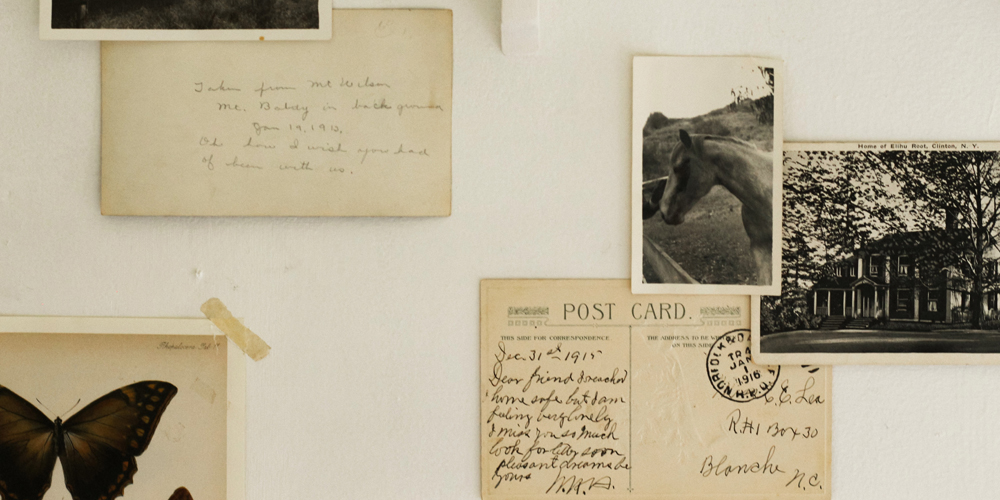 Taken from Mt Wilson
Mt. Baldy in back ground
Jan 19, 1913.
Oh how I wish you had
of been with us.
Home of Elihu Root, Clinton, N. Y.
POST CARD.
THIS SIDE FOR CORRESPONDENCE
THE ADDRESS TO BE
ON THIS SIDE
Dec. 31st 1915
Dear friend I reached
home safe but I am
feling very lonely
I miss you so much
look for soon
pleasant dreams
yours
NORFOLK
TR
JAN
1
1916
C. C. Lea
R#1 Box 30
Blanche N.C.